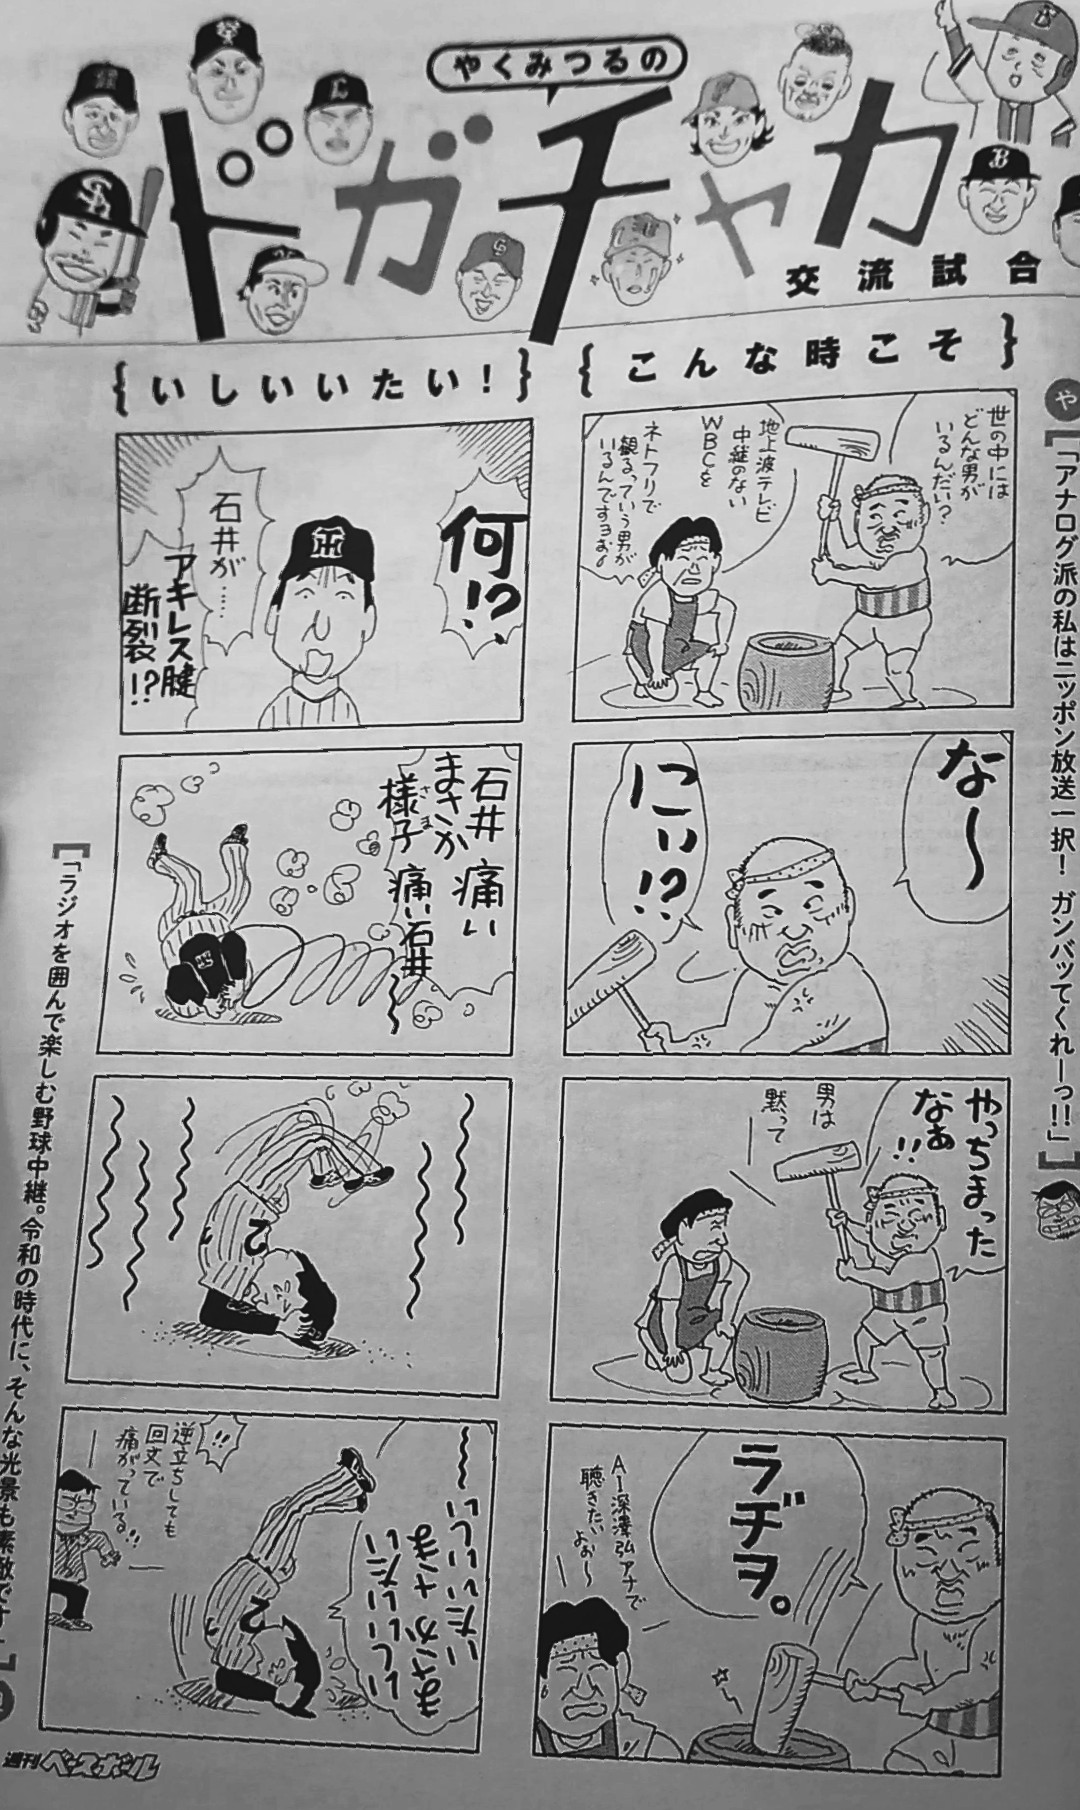 やくみつるの
ドガチャカ
交流試合
{こんな時こそ}
世の中には
どんな男が
いるんだい?
地上波テレビ
中継のない
WBCを
ネトフリで
観るっていう男が
いるんですヨぉ。
な〜
にぃ!?
やっちまった
なぁ!!
男は
黙って
ラヂヲ。
AI深澤弘アナで
聴きたいよぉ〜
{いしいいたい!}
何!?
石井が……
アキレス腱
断裂!?
石井 痛い
まさか
様子 痛い石井
さま
いしいいたい
まさかさま
いたいいしい
!!
逆立ちしても
回文で
痛がっている!!
や
[「アナログ派の私はニッポン放送一択! ガンバッてくれーっ!!」]
[「ラジオを囲んで楽しむ野球中継。令和の時代に、そんな光景も素敵です」]
週刊ベースボール